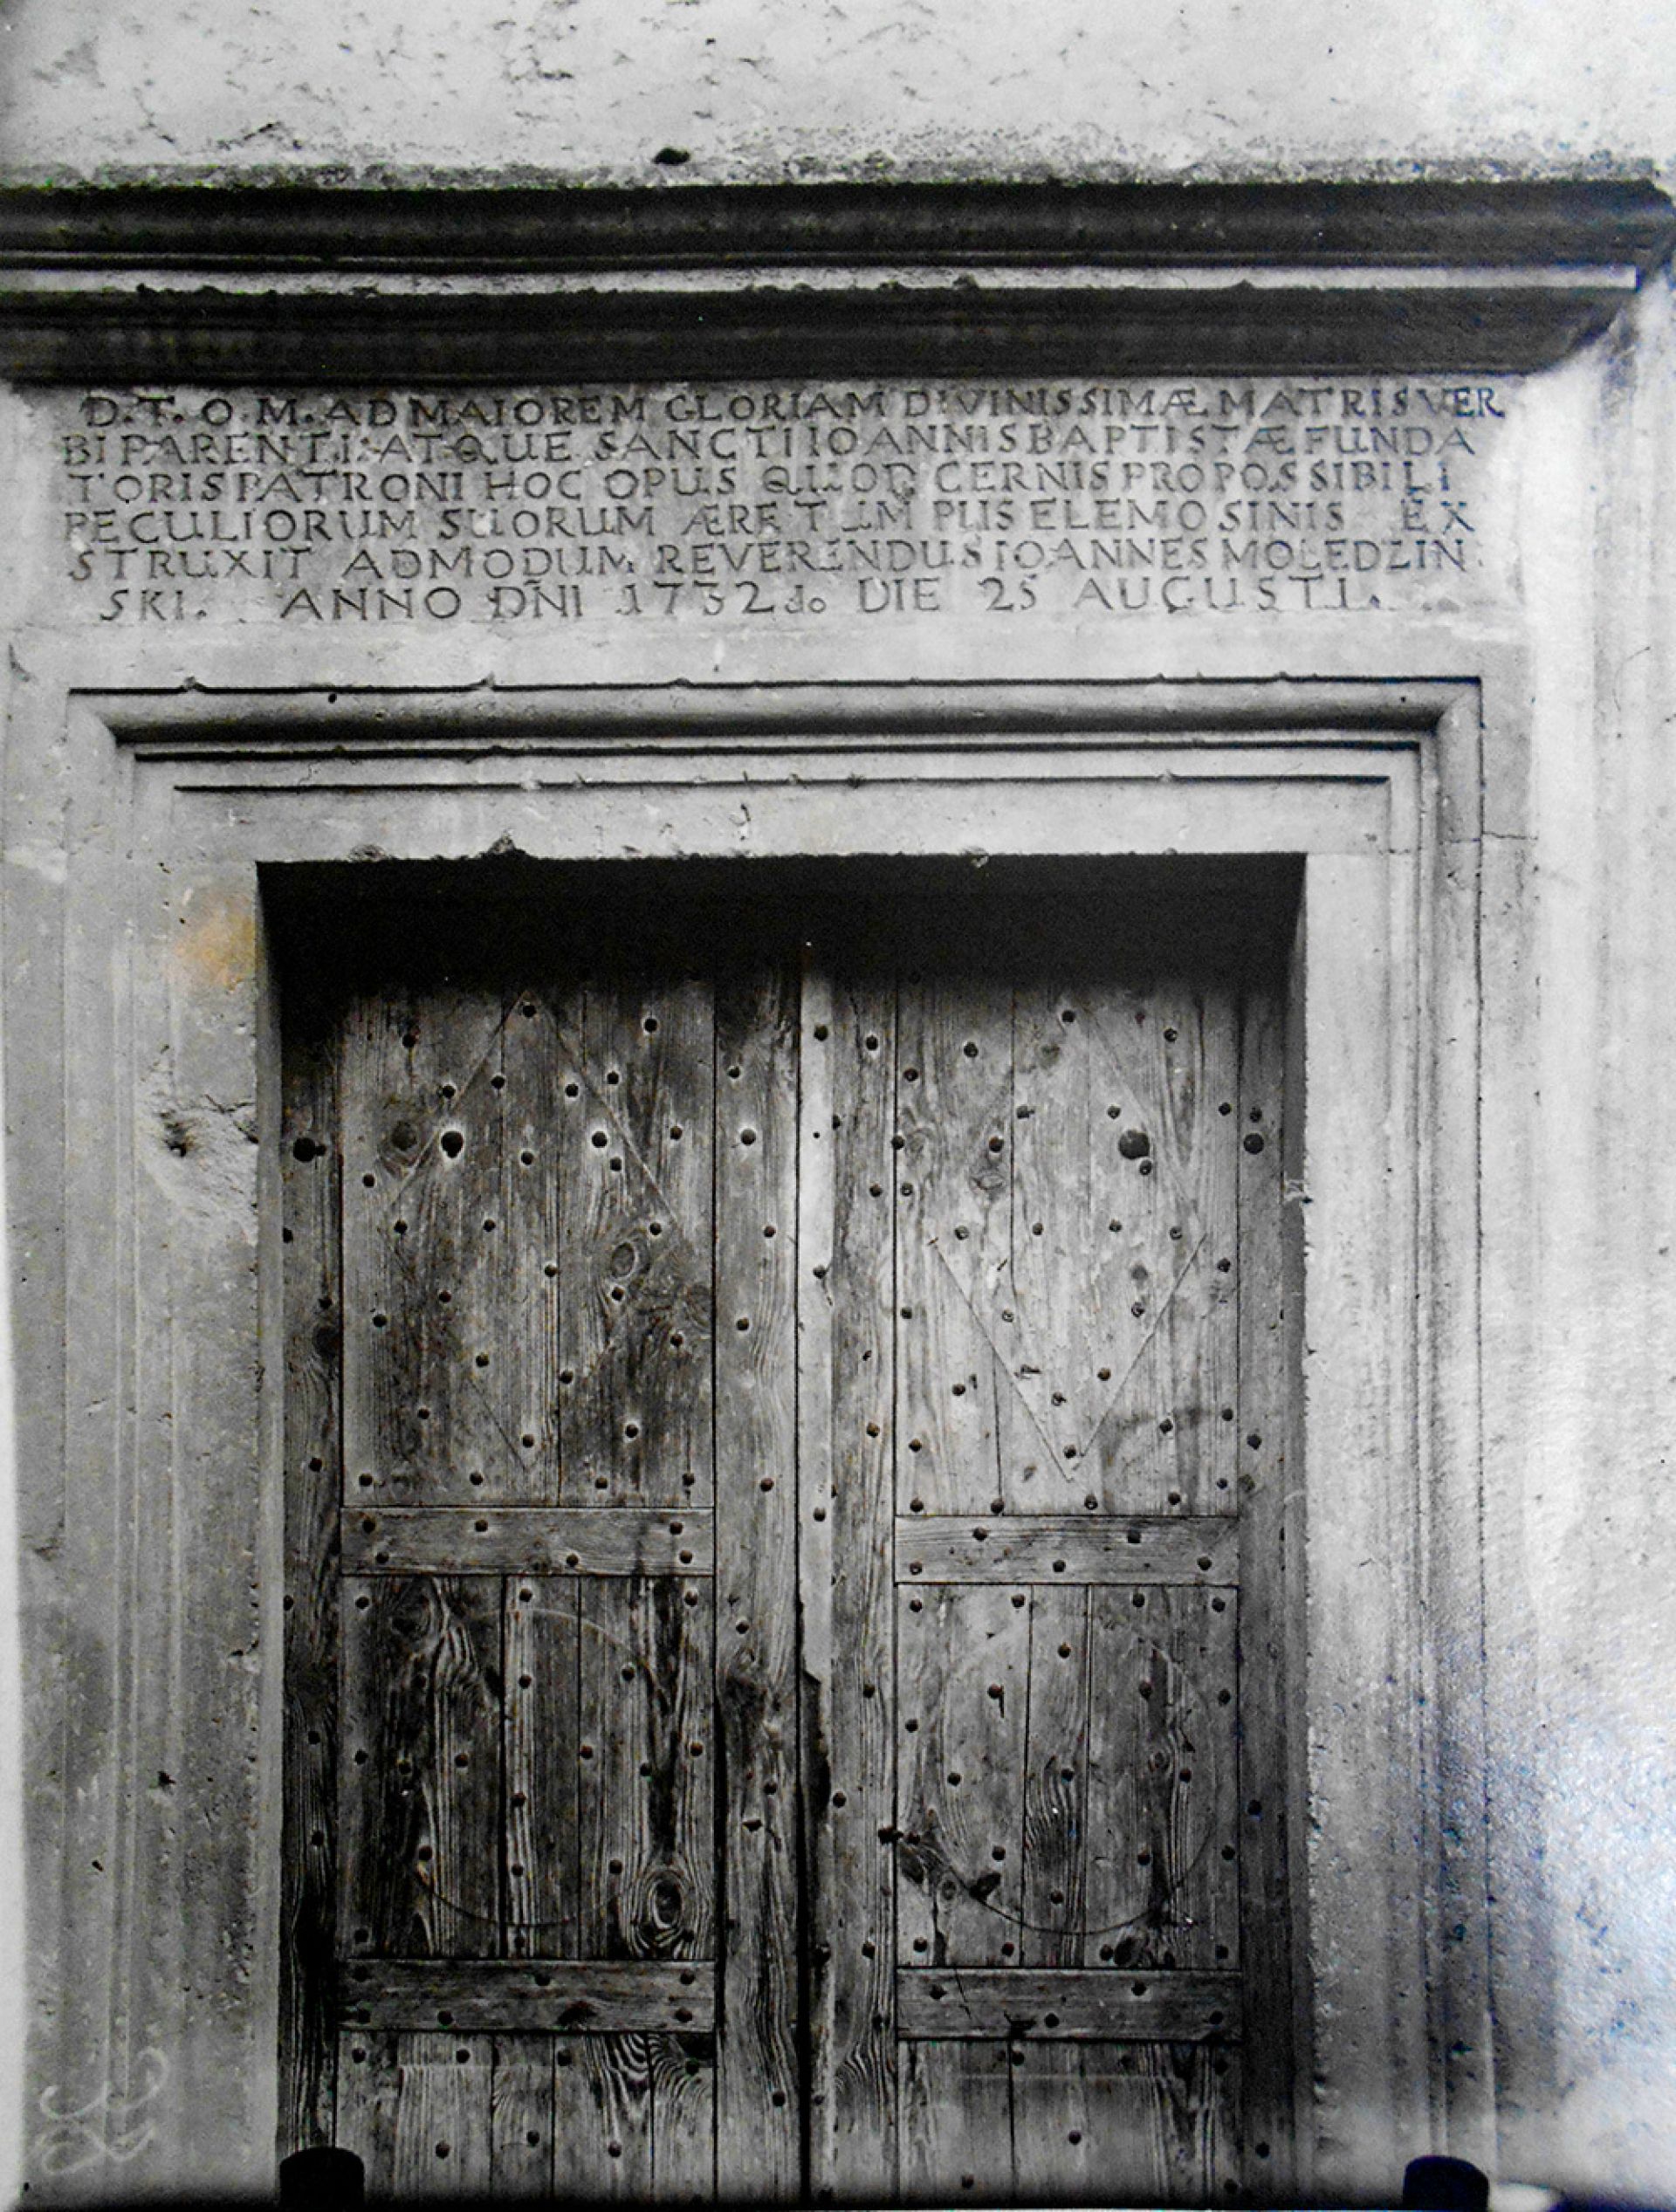 D. T. O. M. AD MAIOREM GLORIAM DIVINISSIMÆ MATRIS VER
BI PARENTI: ATQUE SANCTI IOANNIS BAPTISTÆ FUNDA
TORIS PATRONI HOC OPUS QUOD CERNIS PRO POSSIBILI
PECULIORUM SUORUM ÆRE TUM PIIS ELEMOSINIS EX
STRUXIT ADMODUM REVERENDUS IOANNES MOLEDZIN
SKI. ANNO DÑI 1732do DIE 25 AUGUSTI.